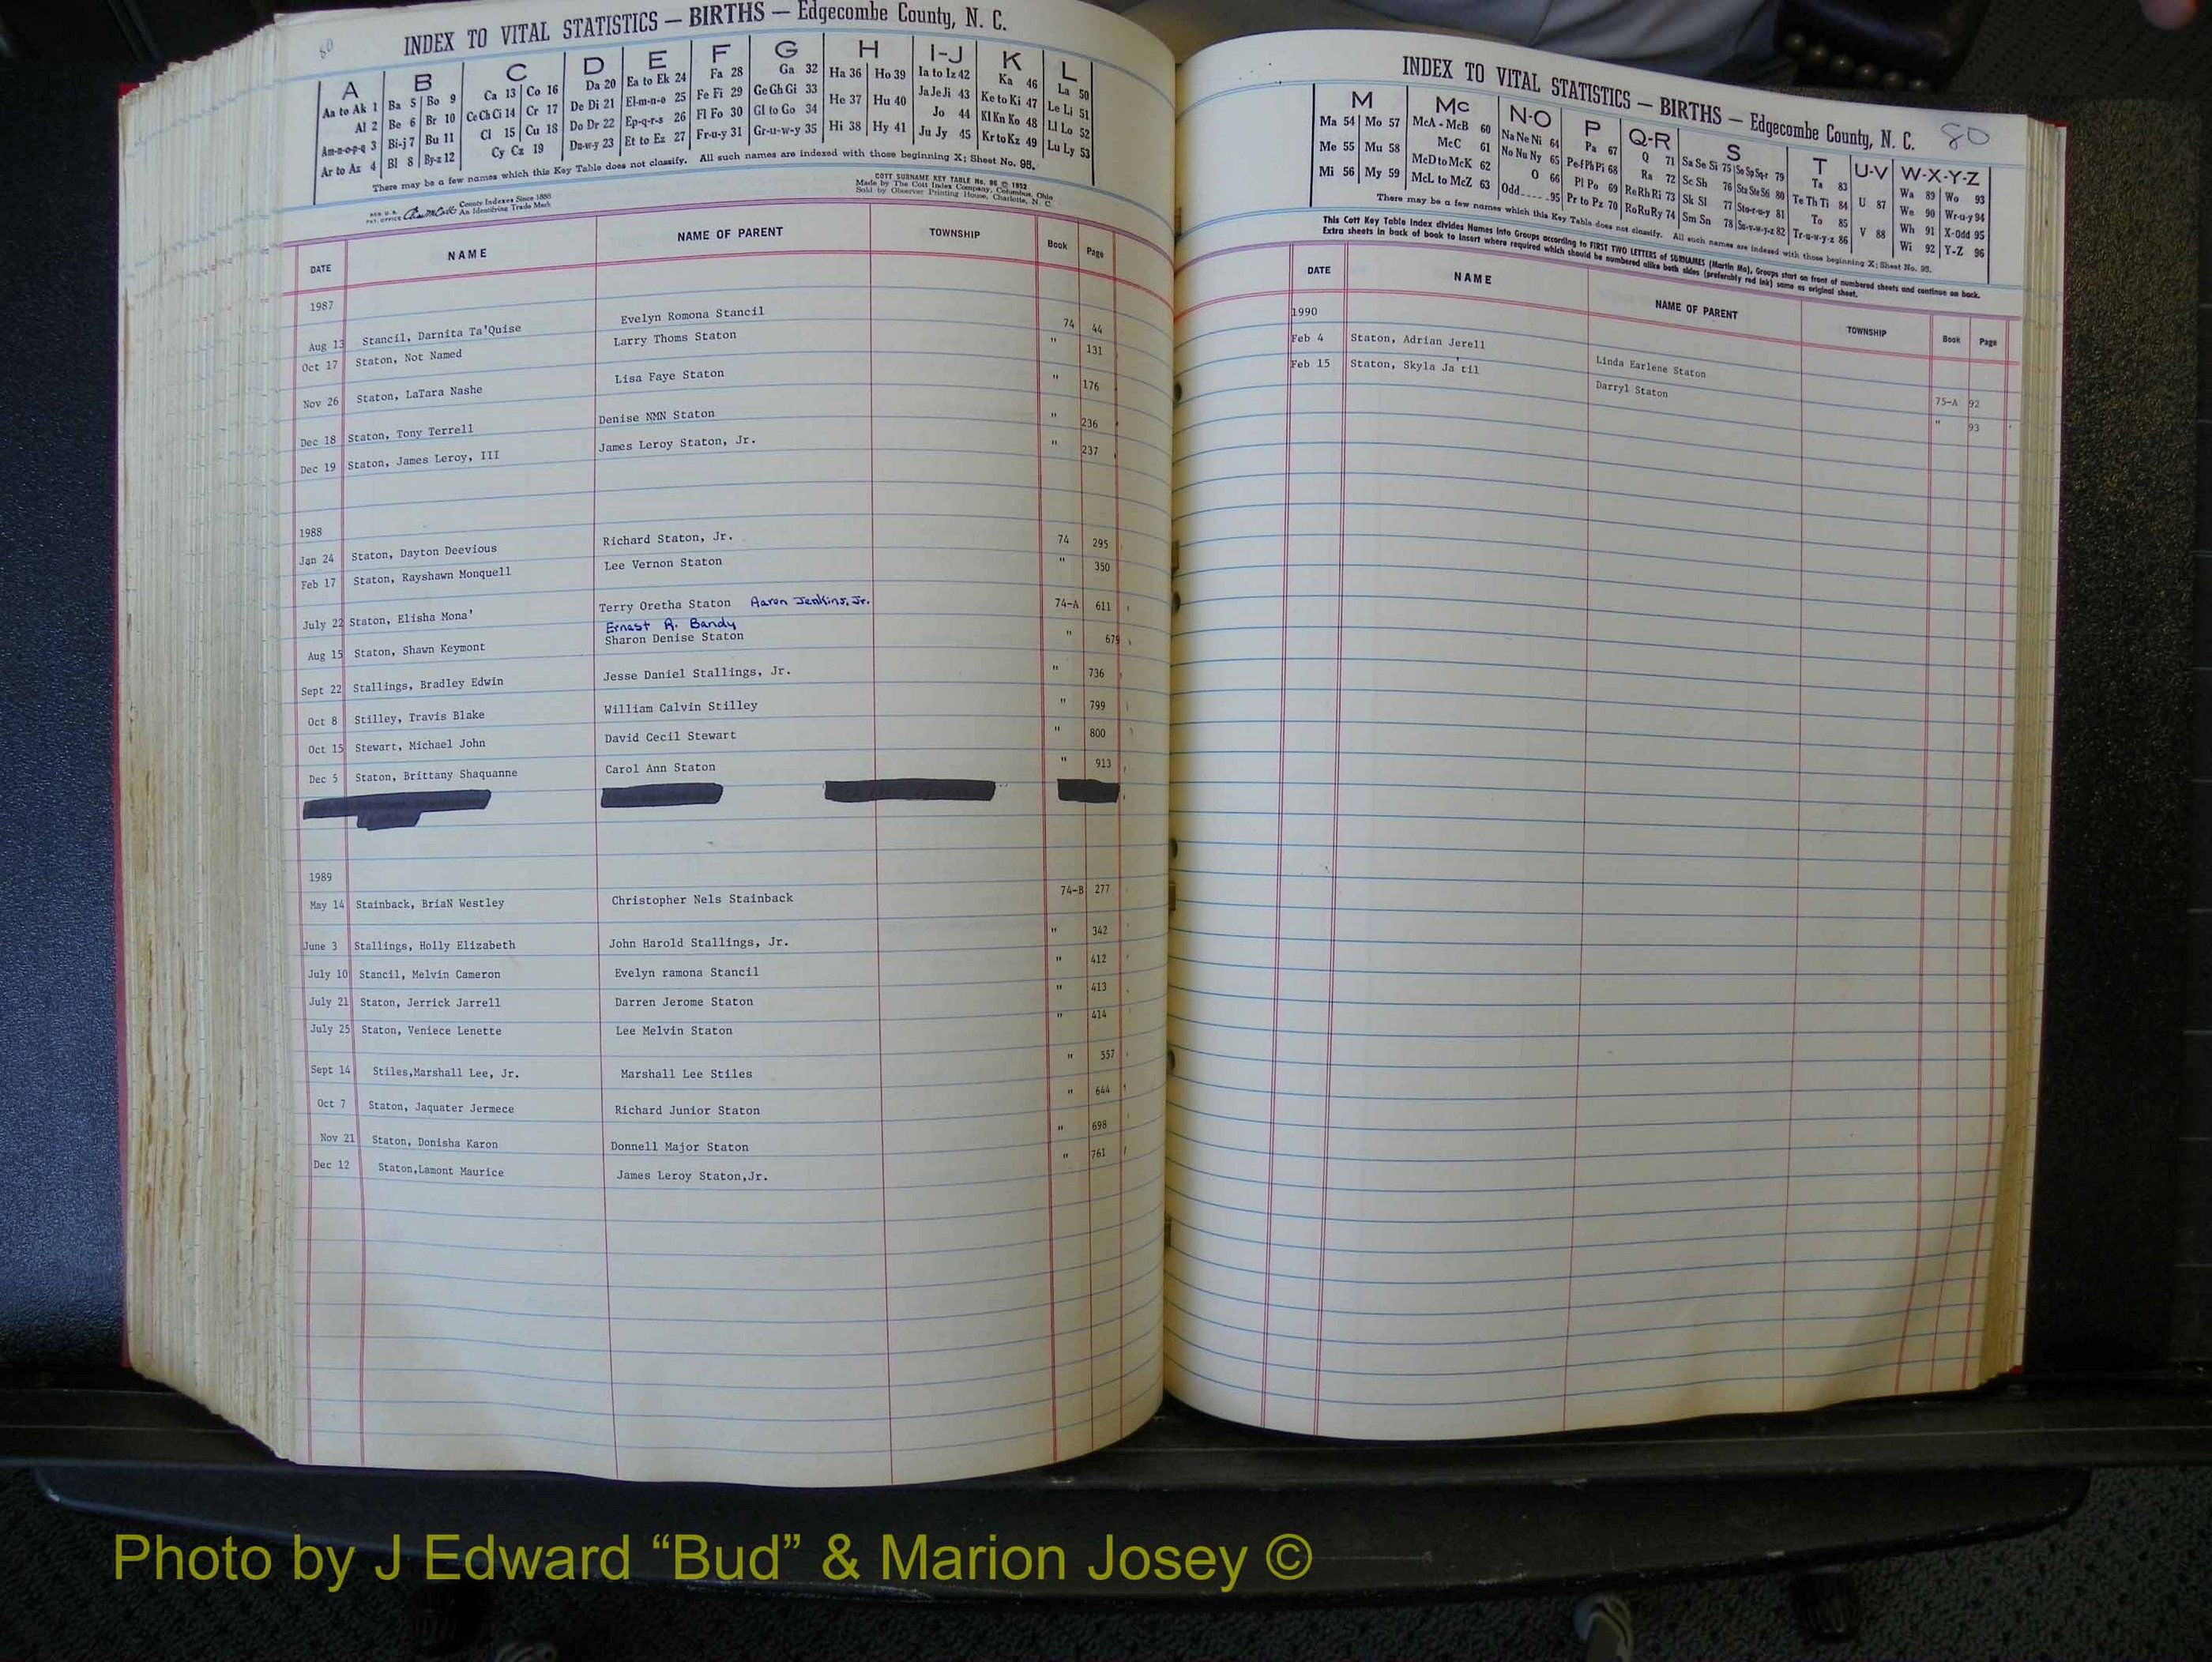 80
INDEX TO VITAL STATISTICS — BIRTHS — Edgecombe County, N. C.
A B C D E F G H I-J K L
Aa to Ak 1 Ba 5 Bo 9 Ca 13 Co 16 Da 20 Ea to Ek 24 Fa 28 Ga 32 Ha 36 Ho 39 Ia to Iz 42 Ka 46 La 50
Al 2 Be 6 Br 10 Ce Ch Ci 14 Cr 17 De Di 21 El-m-n-o 25 Fe Fi 29 Ge Gh Gi 33 He 37 Hu 40 Ja Je Ji 43 Ke to Ki 47 Le Li 51
Am-n-o-p-q 3 Bi-j 7 Bu 11 Cl 15 Cu 18 Do Dr 22 Ep-q-r-s 26 Fl Fo 30 Gl to Go 34 Hi 38 Hy 41 Jo 44 Kl Kn Ko 48 Ll Lo 52
Ar to Az 4 Bl 8 By-z 12 Cy Cz 19 Du-w-y 23 Et to Ez 27 Fr-u-y 31 Gr-u-w-y 35 Ju Jy 45 Kr to Kz 49 Lu Ly 53
There may be a few names which this Key Table does not classify. All such names are indexed with those beginning X; Sheet No. 95.
REG. U.S. PAT. OFFICE County Indexes Since 1888 An Identifying Trade Mark
COTT SURNAME KEY TABLE No. 96 © 1952
Made by The Cott Index Company, Columbus, Ohio
Sold by Observer Printing House, Charlotte, N. C.
DATE NAME NAME OF PARENT TOWNSHIP Book Page
1987
Aug 13 Stancil, Darnita Ta'Quise Evelyn Romona Stancil 74 44
Oct 17 Staton, Not Named Larry Thoms Staton " 131
Nov 26 Staton, LaTara Nashe Lisa Faye Staton " 176
Dec 18 Staton, Tony Terrell Denise NMN Staton " 236
Dec 19 Staton, James Leroy, III James Leroy Staton, Jr. " 237
1988
Jan 24 Staton, Dayton Deevious Richard Staton, Jr. 74 295
Feb 17 Staton, Rayshawn Monquell Lee Vernon Staton " 350
July 22 Staton, Elisha Mona' Terry Oretha Staton Aaron Jenkins, Jr. 74-A 611
Ernest R. Bandy
Aug 15 Staton, Shawn Keymont Sharon Denise Staton " 679
Sept 22 Stallings, Bradley Edwin Jesse Daniel Stallings, Jr. " 736
Oct 8 Stilley, Travis Blake William Calvin Stilley " 799
Oct 15 Stewart, Michael John David Cecil Stewart " 800
Dec 5 Staton, Brittany Shaquanne Carol Ann Staton " 913
1989
May 14 Stainback, BriaN Westley Christopher Nels Stainback 74-B 277
June 3 Stallings, Holly Elizabeth John Harold Stallings, Jr. " 342
July 10 Stancil, Melvin Cameron Evelyn ramona Stancil " 412
July 21 Staton, Jerrick Jarrell Darren Jerome Staton " 413
July 25 Staton, Veniece Lenette Lee Melvin Staton " 414
Sept 14 Stiles,Marshall Lee, Jr. Marshall Lee Stiles " 557
Oct 7 Staton, Jaquater Jermece Richard Junior Staton " 644
Nov 21 Staton, Donisha Karon Donnell Major Staton " 698
Dec 12 Staton,Lamont Maurice James Leroy Staton,Jr. " 761
INDEX TO VITAL STATISTICS — BIRTHS — Edgecombe County, N. C. 80
M Mc N-O P Q-R S T U-V W-X-Y-Z
Ma 54 Mo 57 McA - McB 60 Na Ne Ni 64 Pa 67 Q 71 Sa Se Si 75 So Sp Sq-r 79 Ta 83 U 87 Wa 89 Wo 93
Me 55 Mu 58 McC 61 No Nu Ny 65 Pe-f Ph Pi 68 Ra 72 Sc Sh 76 Sta Ste Sti 80 Te Th Ti 84 V 88 We 90 Wr-u-y 94
Mi 56 My 59 McD to McK 62 O 66 Pl Po 69 Re Rh Ri 73 Sk Sl 77 Sto-r-u-y 81 To 85 Wh 91 X-Odd 95
McL to McZ 63 Odd 95 Pr to Pz 70 Ro Ru Ry 74 Sm Sn 78 Su-v-w-y-z 82 Tr-u-w-y-z 86 Wi 92 Y-Z 96
There may be a few names which this Key Table does not classify. All such names are indexed with those beginning X; Sheet No. 95.
This Cott Key Table Index divides Names into Groups according to FIRST TWO LETTERS of SURNAMES (Martin Ma), Groups start on front of numbered sheets and continue on back.
Extra sheets in back of book to insert where required which should be numbered alike both sides (preferably red ink) same as original sheet.
DATE NAME NAME OF PARENT TOWNSHIP Book Page
1990
Feb 4 Staton, Adrian Jerell Linda Earlene Staton 75-A 92
Feb 15 Staton, Skyla Ja'til Darryl Staton " 93
Photo by J Edward “Bud” & Marion Josey ©